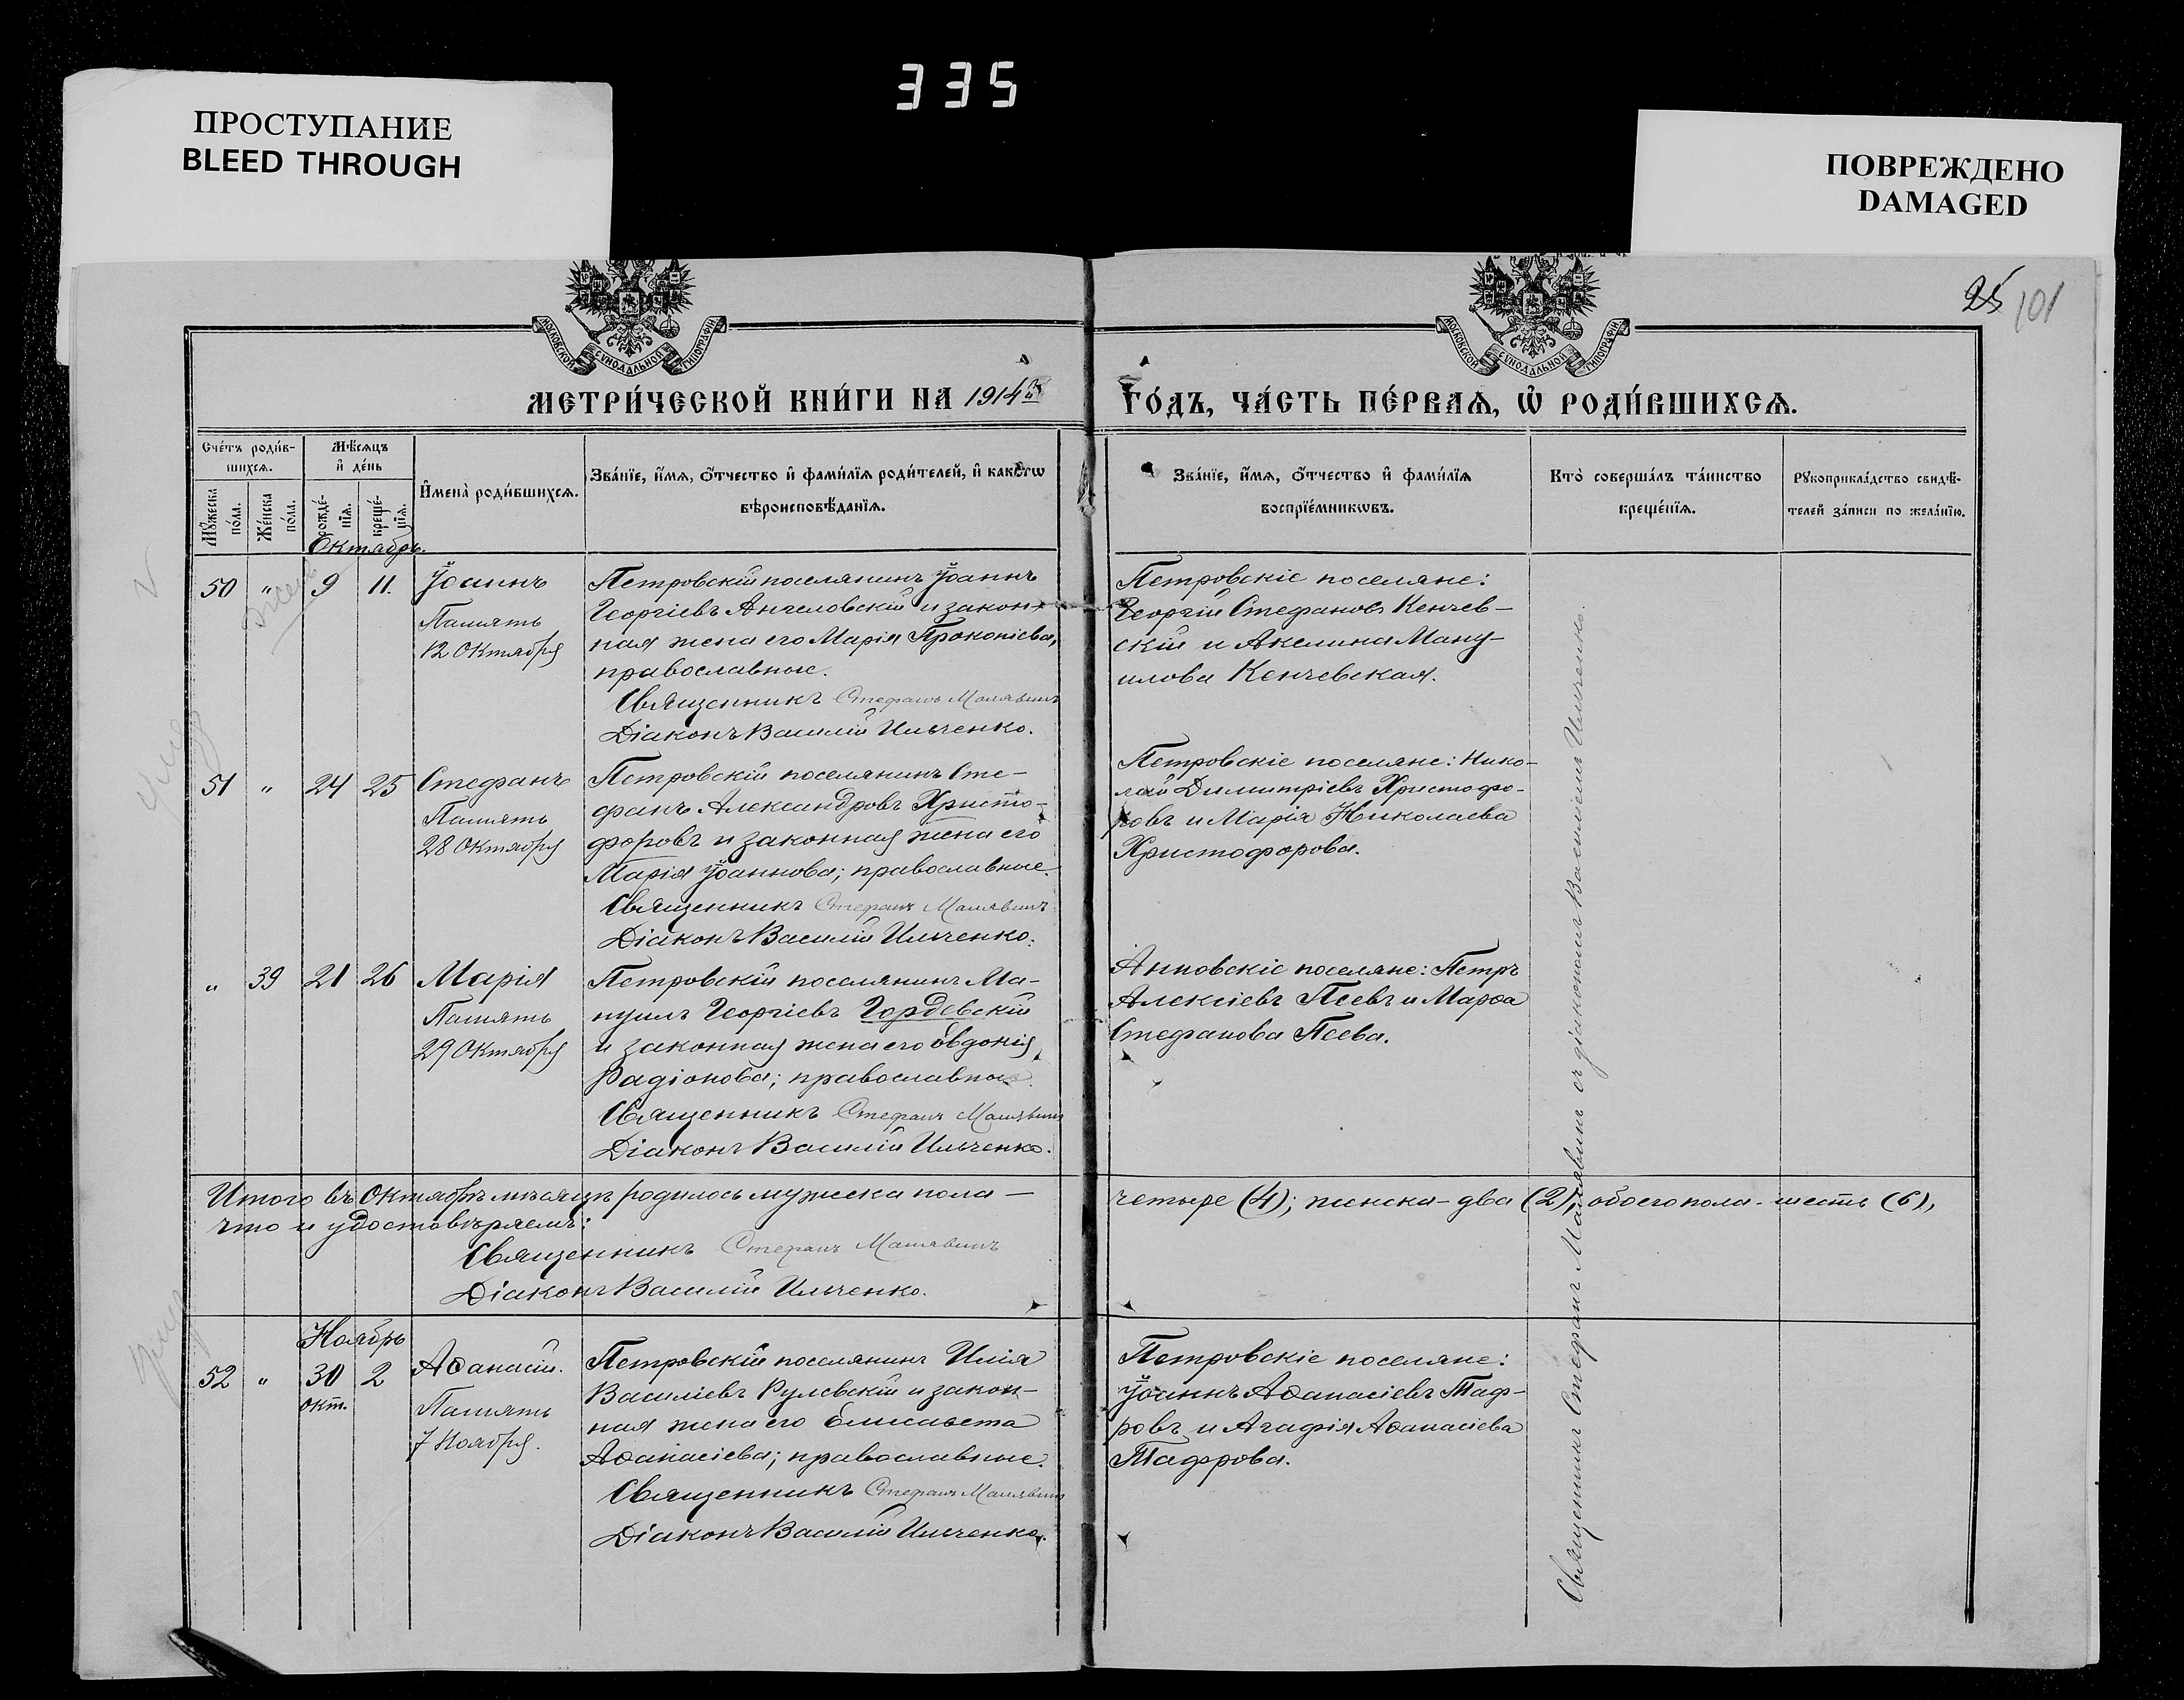 335
ПРОСТУПАНИЕ
BLEED THROUGH
ПОВРЕЖДЕНО
DAMAGED
25 101
МОСКОВСКОЙ СѴНОДАЛЬНОЙ ТИПОГРАФІИ
МОСКОВСКОЙ СѴНОДАЛЬНОЙ ТИПОГРАФІИ
МЕТРИ́ЧЕСКОЙ КНИ́ГИ НА 1914й ГО́ДЪ, ЧА́СТЬ ПЕ́РВАѦ, Ѡ҆ РОДИ́ВШИХСѦ.
Сче́тъ роди́в-
шихсѧ.
Мѹ́жеска по́ла.
Же́нска по́ла.
Мѣ́сѧцъ
и҆ де́нь
рожде́-
нїѧ.
креще́-
нїѧ.
И҆мена̀ роди́вшихсѧ.
Зва́нїе, и҆́мѧ, ѻ҆́тчество и҆ фами́лїѧ роди́телей, и҆ како́гѡ
вѣроисповѣ́данїѧ.
Зва́нїе, и҆́мѧ, ѻ҆́тчество и҆ фами́лїѧ
воспрїе́мникѡвъ.
Кто̀ соверша́лъ та́инство
креще́нїѧ.
Рѹкоприкла́дство свидѣ́-
телей за́писи по жела́нїю.
Октябрь.
50 " 9 11. Іоаннъ
Память
12 Октября
Петровскій поселянинъ Іоаннъ
Георгіевъ Ангеловскій и закон-
ная жена его Марія Прокопіева,
православные.
Священникъ Стефанъ Малявинъ
Діаконъ Василій Ильченко.
Петровскіе поселяне:
Георгій Стефановъ Кенчев-
скій и Акелина Ману-
илова Кенчевская.
51 " 24 25 Стефанъ
Память
28 Октября
Петровскій поселянинъ Сте-
фанъ Александровъ Христо-
форовъ и законная жена его
Марія Іоаннова; православные.
Священникъ Стефанъ Малявинъ
Діаконъ Василій Ильченко.
Петровскіе поселяне: Нико-
лай Димитріевъ Христофо-
ровъ и Марія Николаева
Христофорова.
" 39 21 26 Марія
Память
29 Октября
Петровскій поселянинъ Ма-
нуилъ Георгіевъ Гордевскій
и законная жена его Евдокія
Радіонова; православные.
Священникъ Стефанъ Малявинъ
Діаконъ Василій Ильченко.
Анновскіе поселяне: Петръ
Алексіевъ Пеевъ и Марѳа
Стефанова Пеева.
Итого въ Октябрѣ мѣсяцѣ родилось мужеска пола — четыре (4); женска - два (2), обоего пола - шесть (6),
что и удостовѣряемъ:
Священникъ Стефанъ Малявинъ
Діаконъ Василій Ильченко.
Ноябрь
52 " 30 2 Аѳанасій.
окт.
Память
7 Ноября.
Петровскій поселянинъ Илія
Василіевъ Рулевскій и закон-
ная жена его Елисавета
Аѳанасіева; православные.
Священникъ Стефанъ Малявинъ
Діаконъ Василій Ильченко.
Петровскіе поселяне:
Іоаннъ Аѳанасіевъ Таф-
ровъ и Агафія Аѳанасіева
Тафрова.
Священникъ Стефанъ Малявинъ съ діакономъ Василіемъ Ильченко.